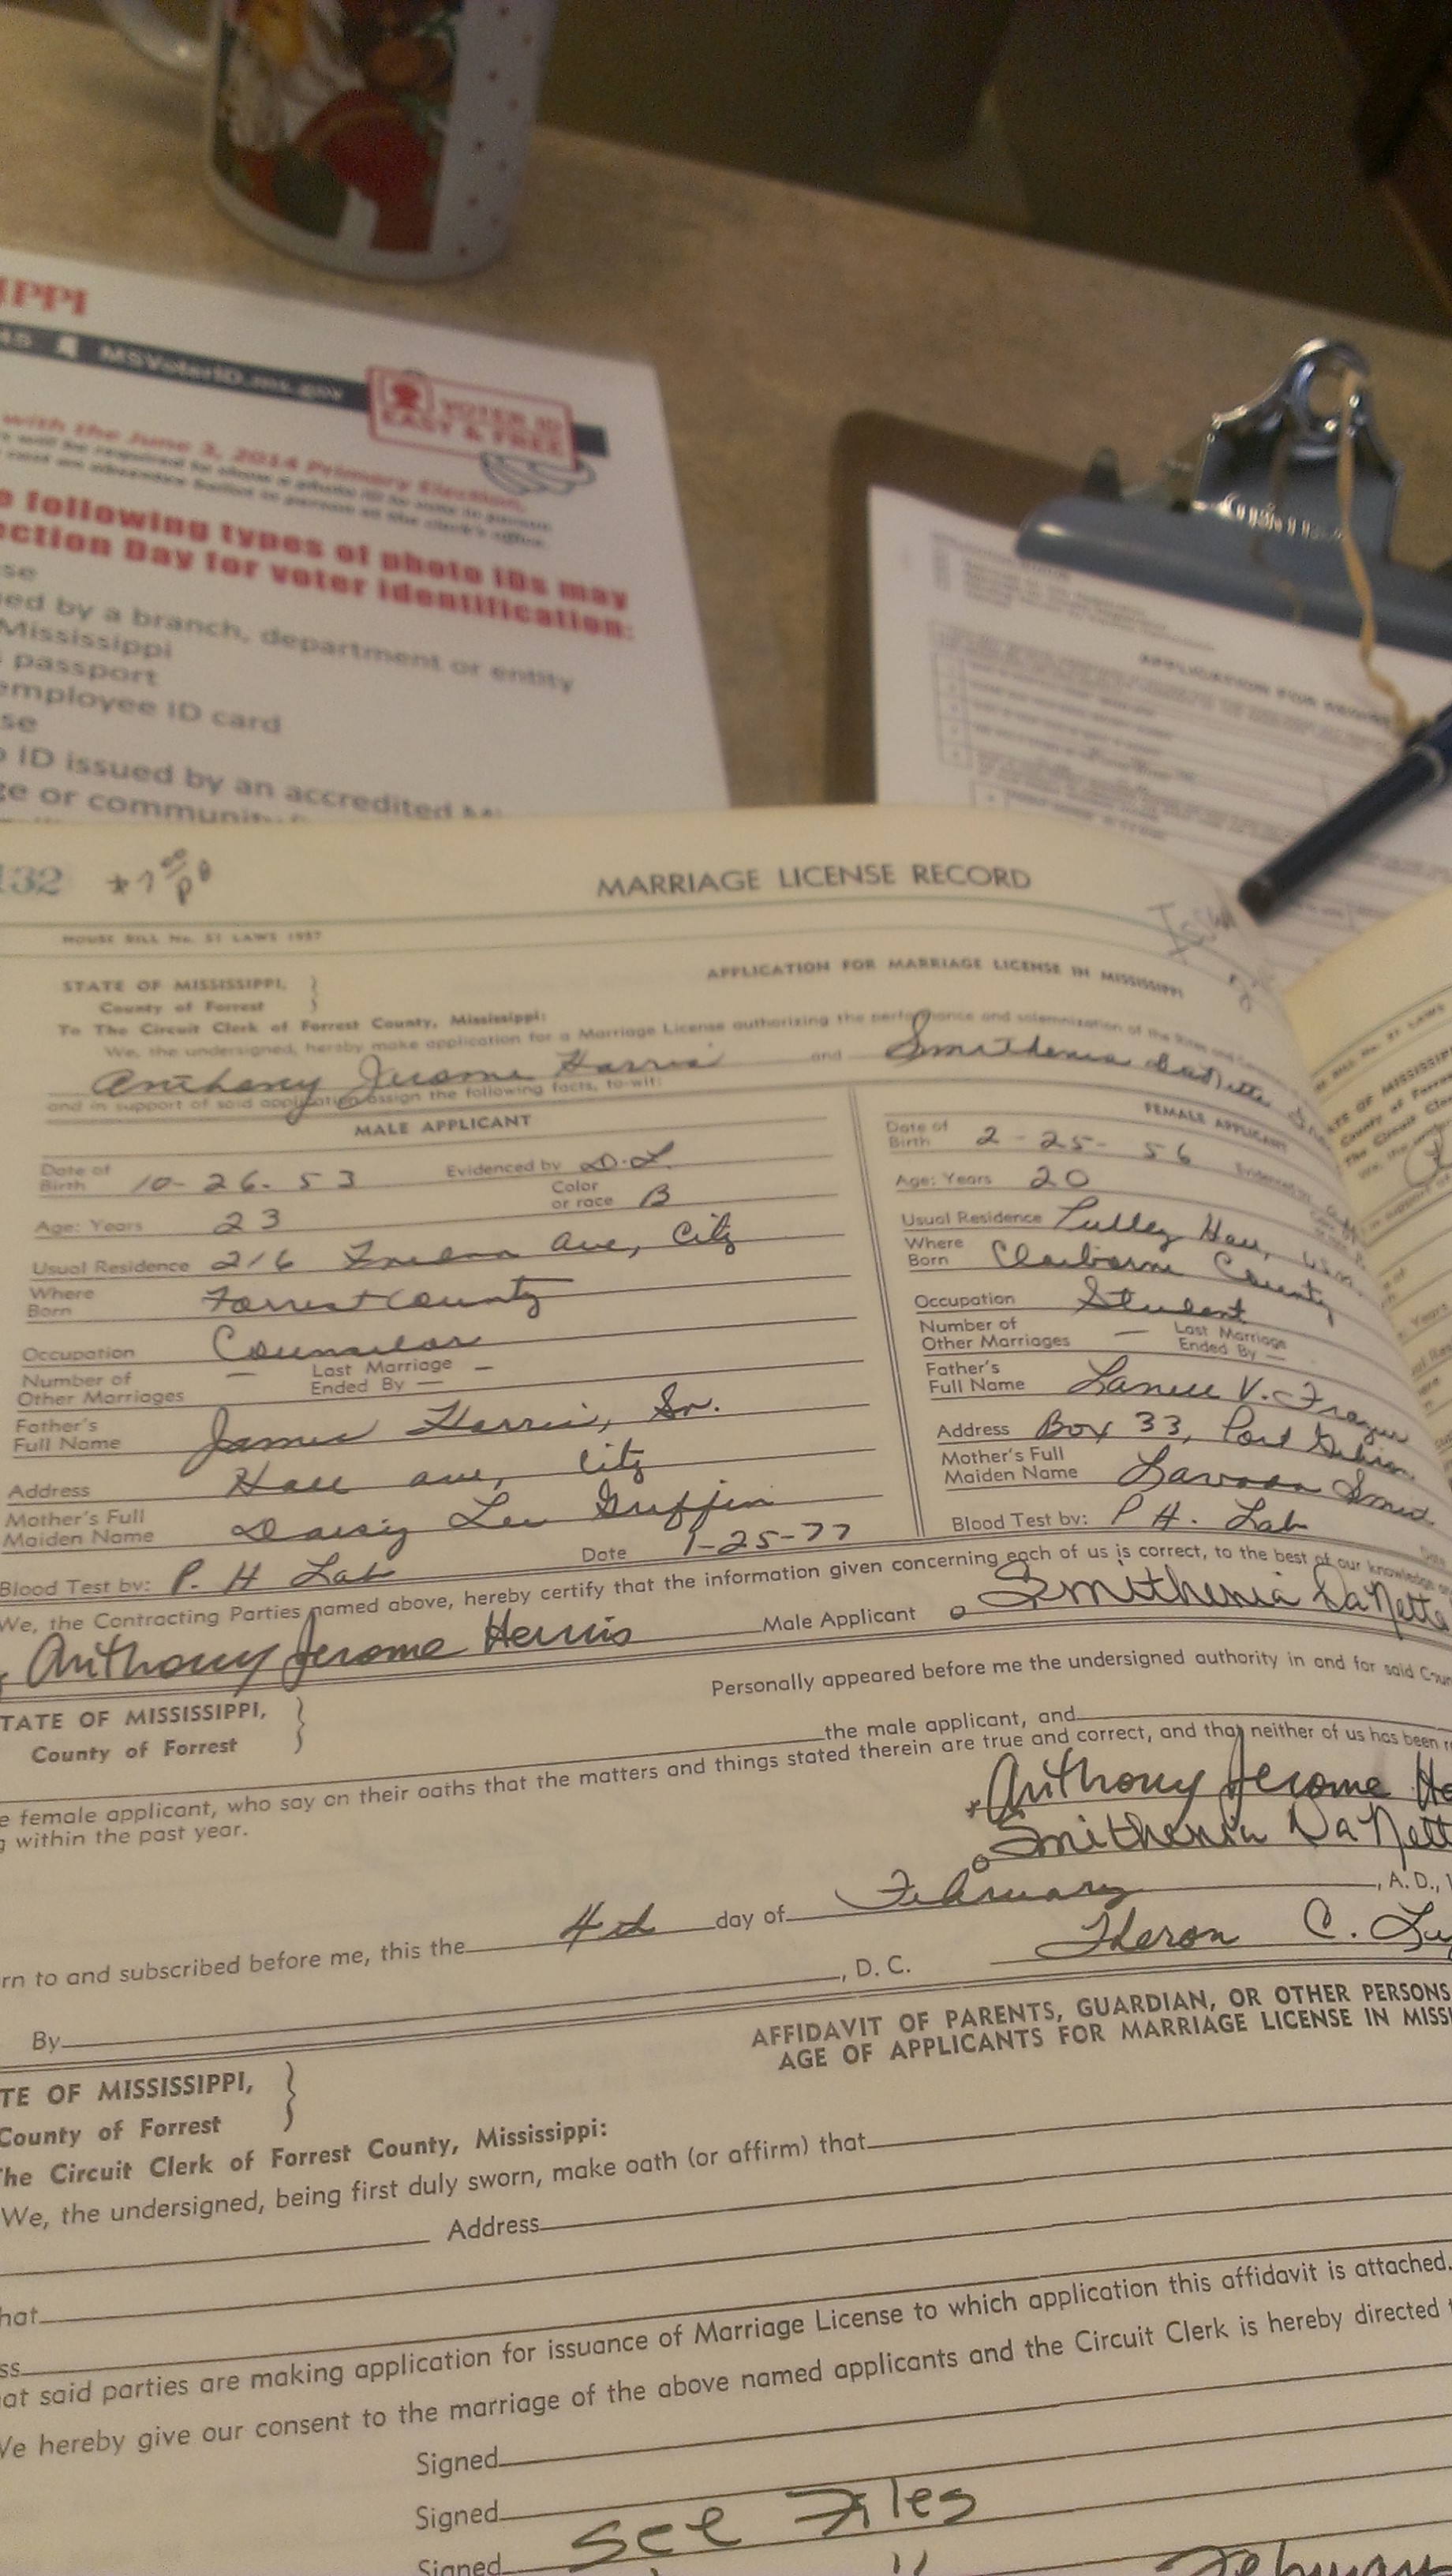 IPPI
MSVoterID.ms.gov
VOTER ID
EASY & FREE
with the June 3, 2014 Primary Election,
will be required to show a photo ID to vote in person
cast an absentee ballot in person at the clerk's office.
following types of photo IDs may
ction Day for voter identification:
se
ed by a branch, department or entity
Mississippi
passport
employee ID card
se
ID issued by an accredited
ge or community
APPLICATION FOR
132
MARRIAGE LICENSE RECORD
HOUSE BILL No. 51 LAWS 1957
STATE OF MISSISSIPPI,
County of Forrest
APPLICATION FOR MARRIAGE LICENSE IN MISSISSIPPI
To The Circuit Clerk of Forrest County, Mississippi:
We, the undersigned, hereby make application for a Marriage License authorizing the performance and solemnization of the Rites
Anthony Jerome Harris and Smithenia DaNette
and in support of said application assign the following facts, to-wit:
MALE APPLICANT
FEMALE APPLICANT
Date of Birth 10-26-53 Evidenced by D.L.
Date of Birth 2-25-56 Evidenced
Age: Years 23 Color or race B
Age: Years 20
Usual Residence 216 Ave, City
Usual Residence Pulley Hall,
Where Born Forrest County
Where Born Claiborne County
Occupation Counselor
Occupation Student
Number of Other Marriages — Last Marriage Ended By —
Number of Other Marriages — Last Marriage Ended By —
Father's Full Name James Harris, Sr.
Father's Full Name V. Frazier
Address Hall Ave, City
Address Box 33, Port Gibson
Mother's Full Maiden Name Daisy Lee Griffin
Mother's Full Maiden Name
Blood Test by: P. H Lab Date 1-25-77
Blood Test by: P H. Lab
We, the Contracting Parties named above, hereby certify that the information given concerning each of us is correct, to the best of our knowledge
Anthony Jerome Harris Male Applicant Smithenia DaNette
TATE OF MISSISSIPPI,
County of Forrest
Personally appeared before me the undersigned authority in and for said Coun
the male applicant, and
e female applicant, who say on their oaths that the matters and things stated therein are true and correct, and that neither of us has been
g within the past year.
Anthony Jerome Ha
Smithenia DaNett
rn to and subscribed before me, this the 4th day of February, A. D.,
Theron C. Ly
By , D. C.
AFFIDAVIT OF PARENTS, GUARDIAN, OR OTHER PERSONS
AGE OF APPLICANTS FOR MARRIAGE LICENSE IN MISS
TE OF MISSISSIPPI,
County of Forrest
he Circuit Clerk of Forrest County, Mississippi:
We, the undersigned, being first duly sworn, make oath (or affirm) that
Address
hat
ss
at said parties are making application for issuance of Marriage License to which application this affidavit is attached.
We hereby give our consent to the marriage of the above named applicants and the Circuit Clerk is hereby directed
Signed
Signed
Signed See Files